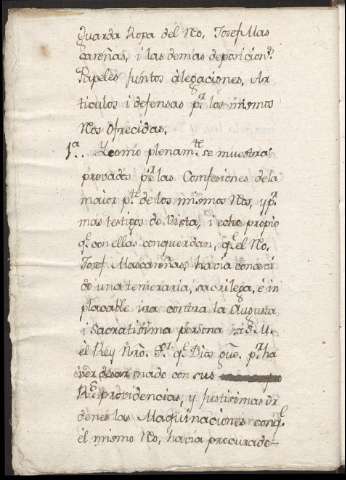 Guarda Ropa del Rèo, Josef Mas
careñas, i las demas deposicion.s
Papeles juntos alegaciones, Ar
ticulos i defensas p.r los mismos
Rèos ofrecidas.
1.a .. Y como plenam.te se muestra
provado p.r las Confesiones de la
maior p.te de los mismos Rèos, y p.r
mas testigos de Vista, i echo propio
q.e con ellas concuerdan, q.e el Rèo,
Josef Mascareñas, havia concevi
do una temeraria, sacrilega, è im
placable ira contra la Augusta
i Sacratissima persona
el Rey Nrõ. S.r q.e Dios gue. p.r ha
ver desarmado con sus
R.s providencias, y justissimas or
denes las Maquinaciones con q.e
el mismo Rèo, havia procurado